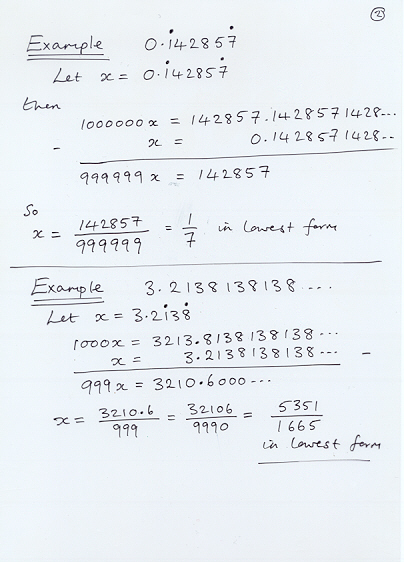 2
Example 0.1̇42857̇
Let x = 0.1̇42857̇
then
1000000x = 142857.1428571428...
- x = 0.1428571428...
999999x = 142857
So
x = 142857/999999 = 1/7 in lowest form
Example 3.2138138138....
Let x = 3.21̇38̇
1000x = 3213.8138138138...
x = 3.2138138138... -
999x = 3210.6000...
x = 3210.6/999 = 32106/9990 = 5351/1665
in lowest form